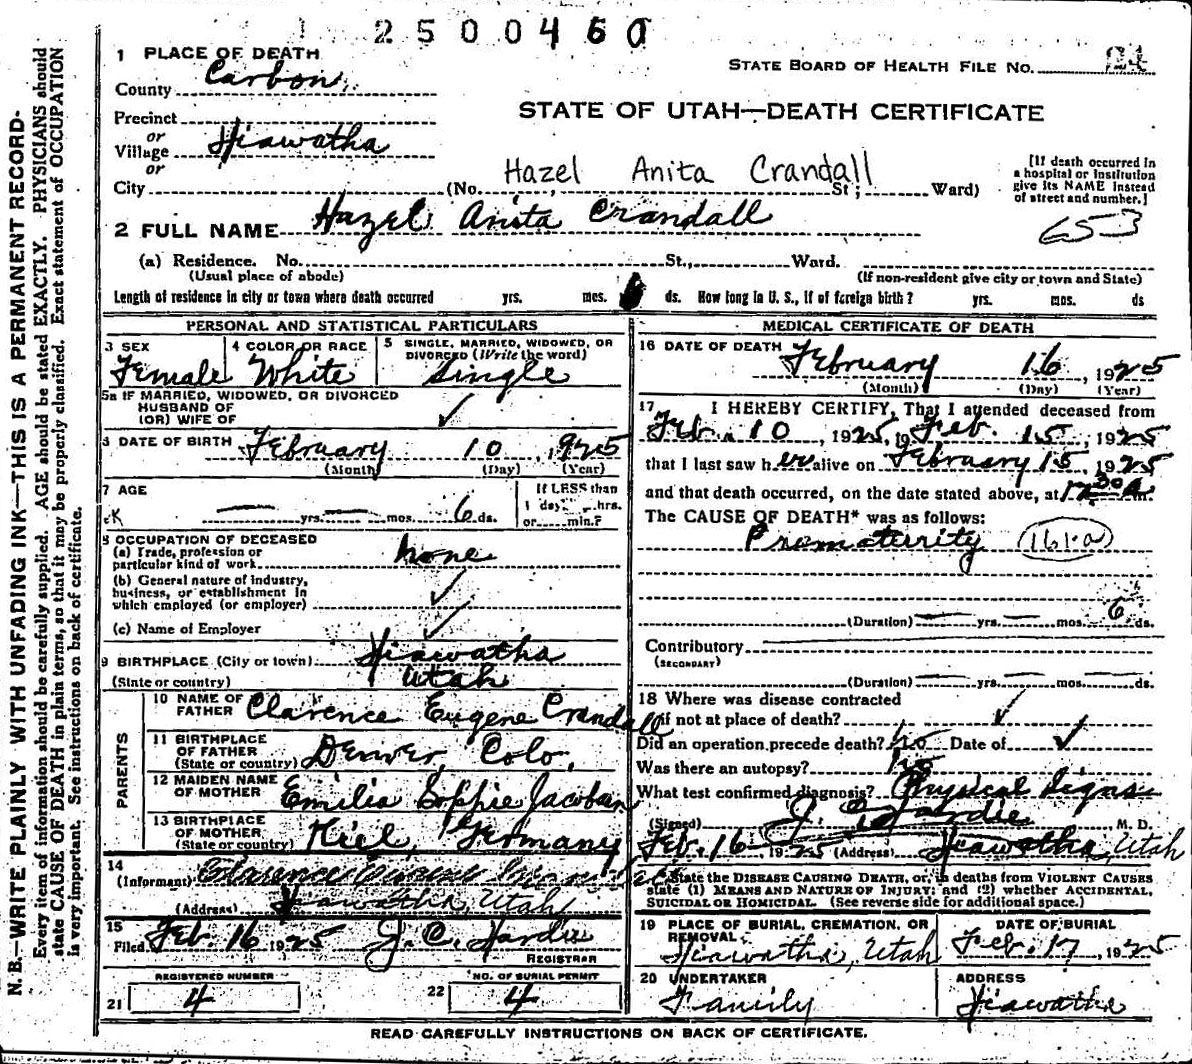 2500460
1 PLACE OF DEATH
STATE BOARD OF HEALTH FILE No. 24
County Carbon
STATE OF UTAH—DEATH CERTIFICATE
Precinct
or
Village Hiawatha
or
[If death occurred in a hospital or institution give its NAME instead of street and number.]
Hazel Anita Crandall
City (No. St; Ward)
2 FULL NAME Hazel Anita Crandall
653
(a) Residence. No. St., Ward.
(Usual place of abode) (If non-resident give city or town and State)
Length of residence in city or town where death occurred yrs. mos. 6 ds. How long in U. S., if of foreign birth? yrs. mos. ds
PERSONAL AND STATISTICAL PARTICULARS
3 SEX Female
4 COLOR OR RACE White
5 SINGLE, MARRIED, WIDOWED, OR DIVORCED (Write the word) Single
5a IF MARRIED, WIDOWED, OR DIVORCED
HUSBAND OF
(OR) WIFE OF ✓
6 DATE OF BIRTH February 10, 1925
(Month) (Day) (Year)
7 AGE
yrs. mos. 6 ds.
If LESS than
1 day, hrs.
or min.?
8 OCCUPATION OF DECEASED
(a) Trade, profession or
particular kind of work none
(b) General nature of industry,
business, or establishment in
which employed (or employer) ✓
(c) Name of Employer ✓
9 BIRTHPLACE (City or town) Hiawatha
(State or country) Utah
PARENTS
10 NAME OF FATHER Clarence Eugene Crandall
11 BIRTHPLACE OF FATHER (State or country) Denver, Colo.
12 MAIDEN NAME OF MOTHER Emilia Sophie Jacobsen
13 BIRTHPLACE OF MOTHER (State or country) Kiel, Germany
14
(Informant) Clarence Eugene Crandall
(Address) Hiawatha, Utah
15
Filed Feb. 16 1925 J. C. Hardie
REGISTRAR
REGISTERED NUMBER
21 4
NO. OF BURIAL PERMIT
22 4
MEDICAL CERTIFICATE OF DEATH
16 DATE OF DEATH February 16, 1925
(Month) (Day) (Year)
17 I HEREBY CERTIFY, That I attended deceased from
Feb. 10, 1925, to Feb. 15, 1925
that I last saw her alive on February 15, 1925
and that death occurred, on the date stated above, at m.
The CAUSE OF DEATH* was as follows:
Prematurity (161-a)
(Duration) yrs. mos. 6 ds.
Contributory
(SECONDARY)
(Duration) yrs. mos. ds.
18 Where was disease contracted
if not at place of death? ✓
Did an operation precede death? no Date of ✓
Was there an autopsy? no
What test confirmed diagnosis? Physical Signs
(Signed) J. C. Hardie M. D.
Feb. 16, 1925 (Address) Hiawatha, Utah
*State the DISEASE CAUSING DEATH, or, in deaths from VIOLENT CAUSES
state (1) MEANS AND NATURE OF INJURY; and (2) whether ACCIDENTAL,
SUICIDAL OR HOMICIDAL. (See reverse side for additional space.)
19 PLACE OF BURIAL, CREMATION, OR REMOVAL
Hiawatha, Utah
DATE OF BURIAL
Feb. 17, 1925
20 UNDERTAKER
Family
ADDRESS
Hiawatha
READ CAREFULLY INSTRUCTIONS ON BACK OF CERTIFICATE.
N. B.—WRITE PLAINLY WITH UNFADING INK—THIS IS A PERMANENT RECORD-
Every item of information should be carefully supplied. AGE should be stated EXACTLY. PHYSICIANS should
state CAUSE OF DEATH in plain terms, so that it may be properly classified. Exact statement of OCCUPATION
is very important. See instructions on back of certificate.